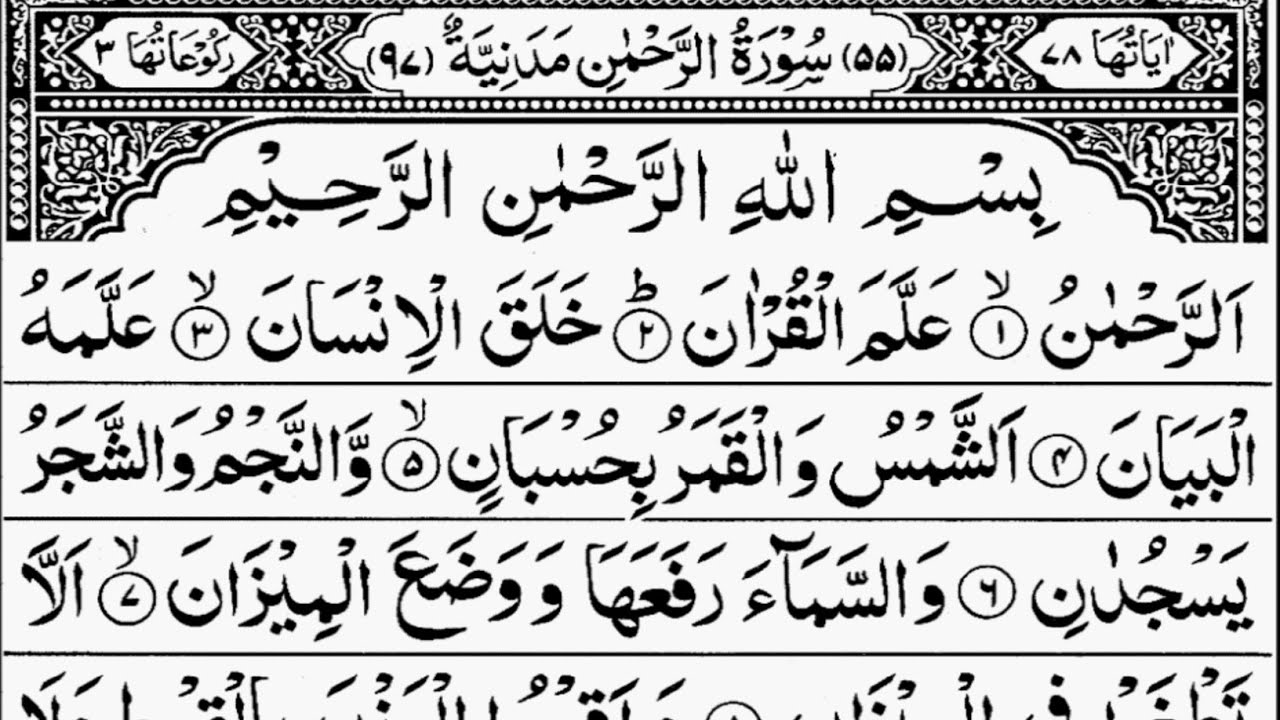 اٰيَاتُهَا ٧٨ (٥٥) سُوْرَةُ الرَّحْمٰنِ مَدَنِيَّةٌ (٩٧) رُكُوْعَاتُهَا ٣
بِسْمِ اللّٰهِ الرَّحْمٰنِ الرَّحِيْمِ
اَلرَّحْمٰنُ ۙ﴿١﴾ عَلَّمَ الْقُرْاٰنَ ؕ﴿٢﴾ خَلَقَ الْاِنْسَانَ ۙ﴿٣﴾ عَلَّمَهُ
الْبَيَانَ ﴿۴﴾ اَلشَّمْسُ وَالْقَمَرُ بِحُسْبَانٍ ۙ﴿۵﴾ وَّالنَّجْمُ وَالشَّجَرُ
يَسْجُدٰنِ ﴿٦﴾ وَالسَّمَآءَ رَفَعَهَا وَوَضَعَ الْمِيْزَانَ ۙ﴿٧﴾ اَلَّا